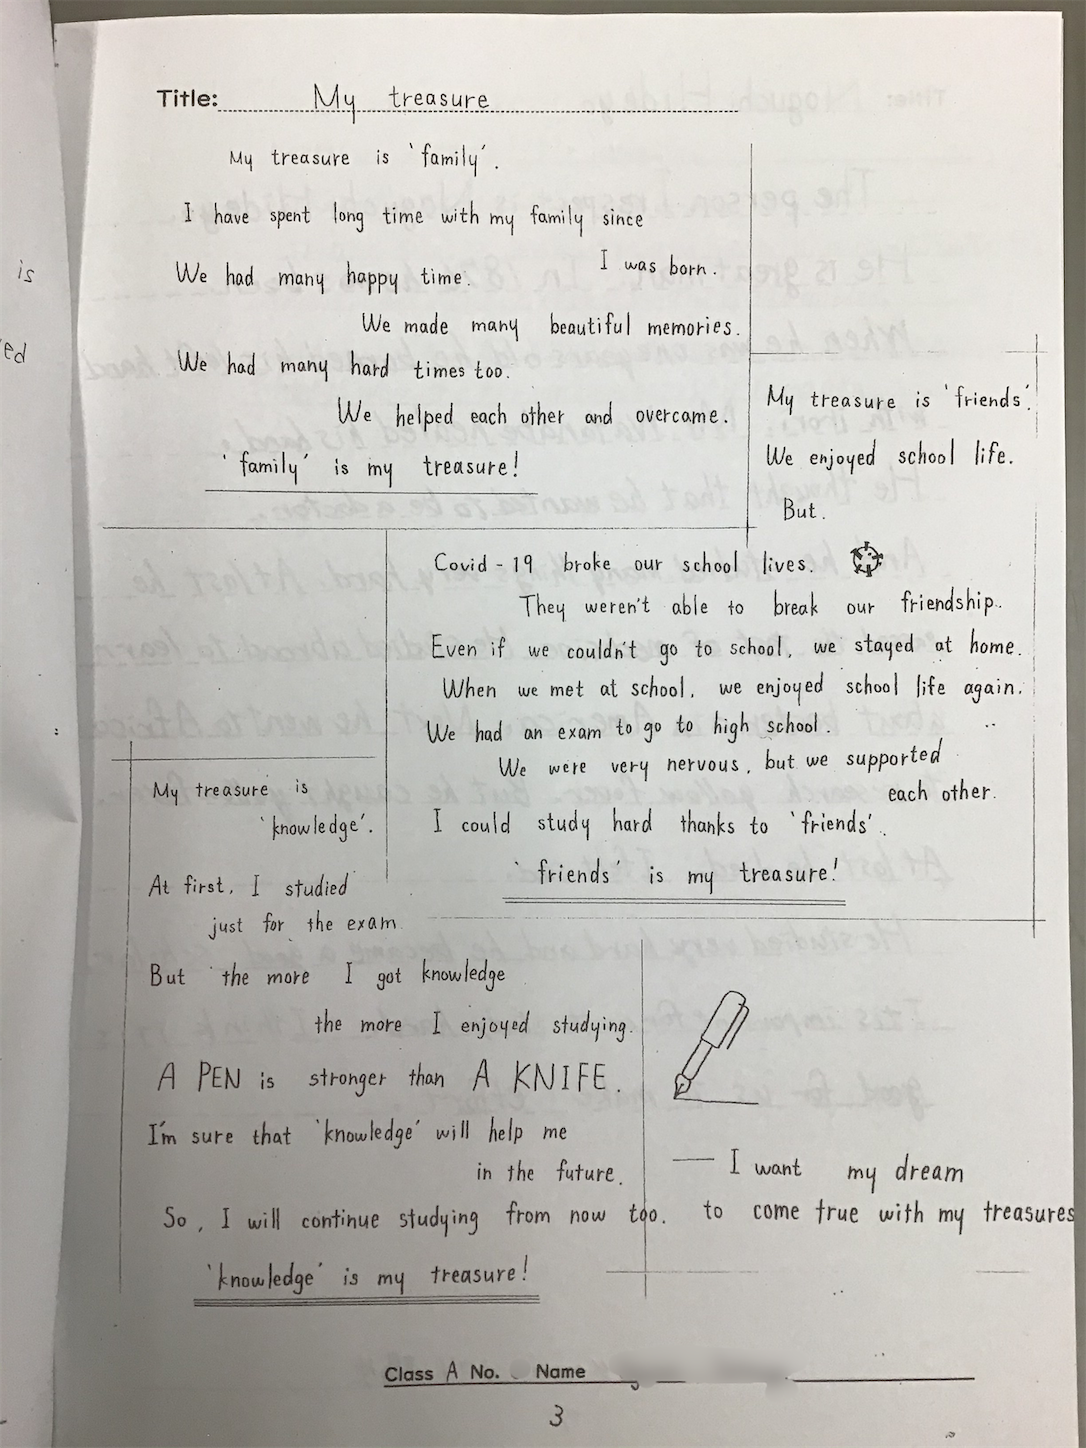 Title: My treasure
My treasure is 'family'.
I have spent long time with my family since
I was born.
We had many happy time.
We made many beautiful memories.
We had many hard times too.
We helped each other and overcame.
'family' is my treasure!
My treasure is 'friends'.
We enjoyed school life.
But.
Covid-19 broke our school lives.
They weren't able to break our friendship.
Even if we couldn't go to school, we stayed at home.
When we met at school, we enjoyed school life again.
We had an exam to go to high school.
We were very nervous, but we supported
each other.
I could study hard thanks to 'friends'.
'friends' is my treasure!
My treasure is
'knowledge'.
At first, I studied
just for the exam.
But the more I got knowledge
the more I enjoyed studying.
A PEN is stronger than A KNIFE.
I'm sure that 'knowledge' will help me
in the future.
So, I will continue studying from now too.
'knowledge' is my treasure!
— I want my dream
to come true with my treasures
Class A No. Name
3
is
ed